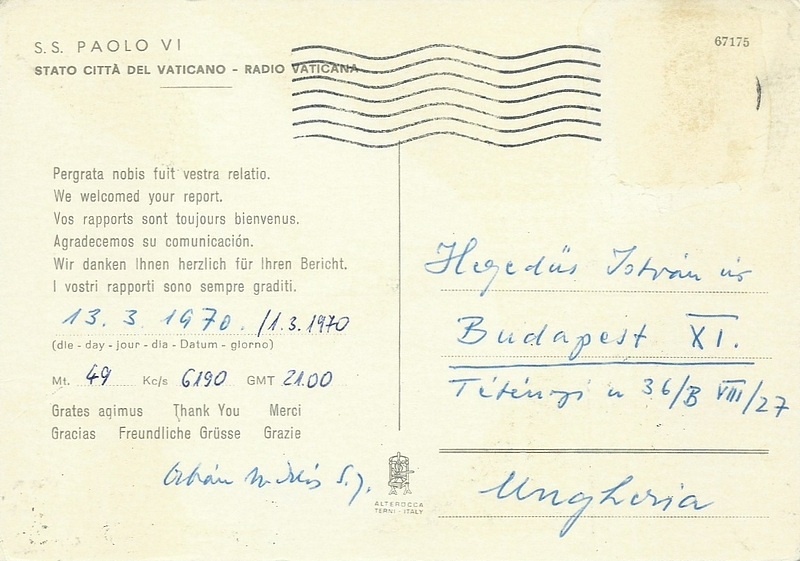 S.S. PAOLO VI
STATO CITTÀ DEL VATICANO - RADIO VATICANA
67175
Pergrata nobis fuit vestra relatio.
We welcomed your report.
Vos rapports sont toujours bienvenus.
Agradecemos su comunicación.
Wir danken Ihnen herzlich für Ihren Bericht.
I vostri rapporti sono sempre graditi.
13. 3. 1970. /1.3.1970
(die - day - jour - dia - Datum - giorno)
Mt. 49 Kc/s 6190 GMT 21.00
Grates agimus Thank You Merci
Gracias Freundliche Grüsse Grazie
S.J.
ALTEROCCA
TERNI - ITALY
Hegedüs István úr
Budapest XI.
Tétényi u 36/B VIII/27
Ungheria